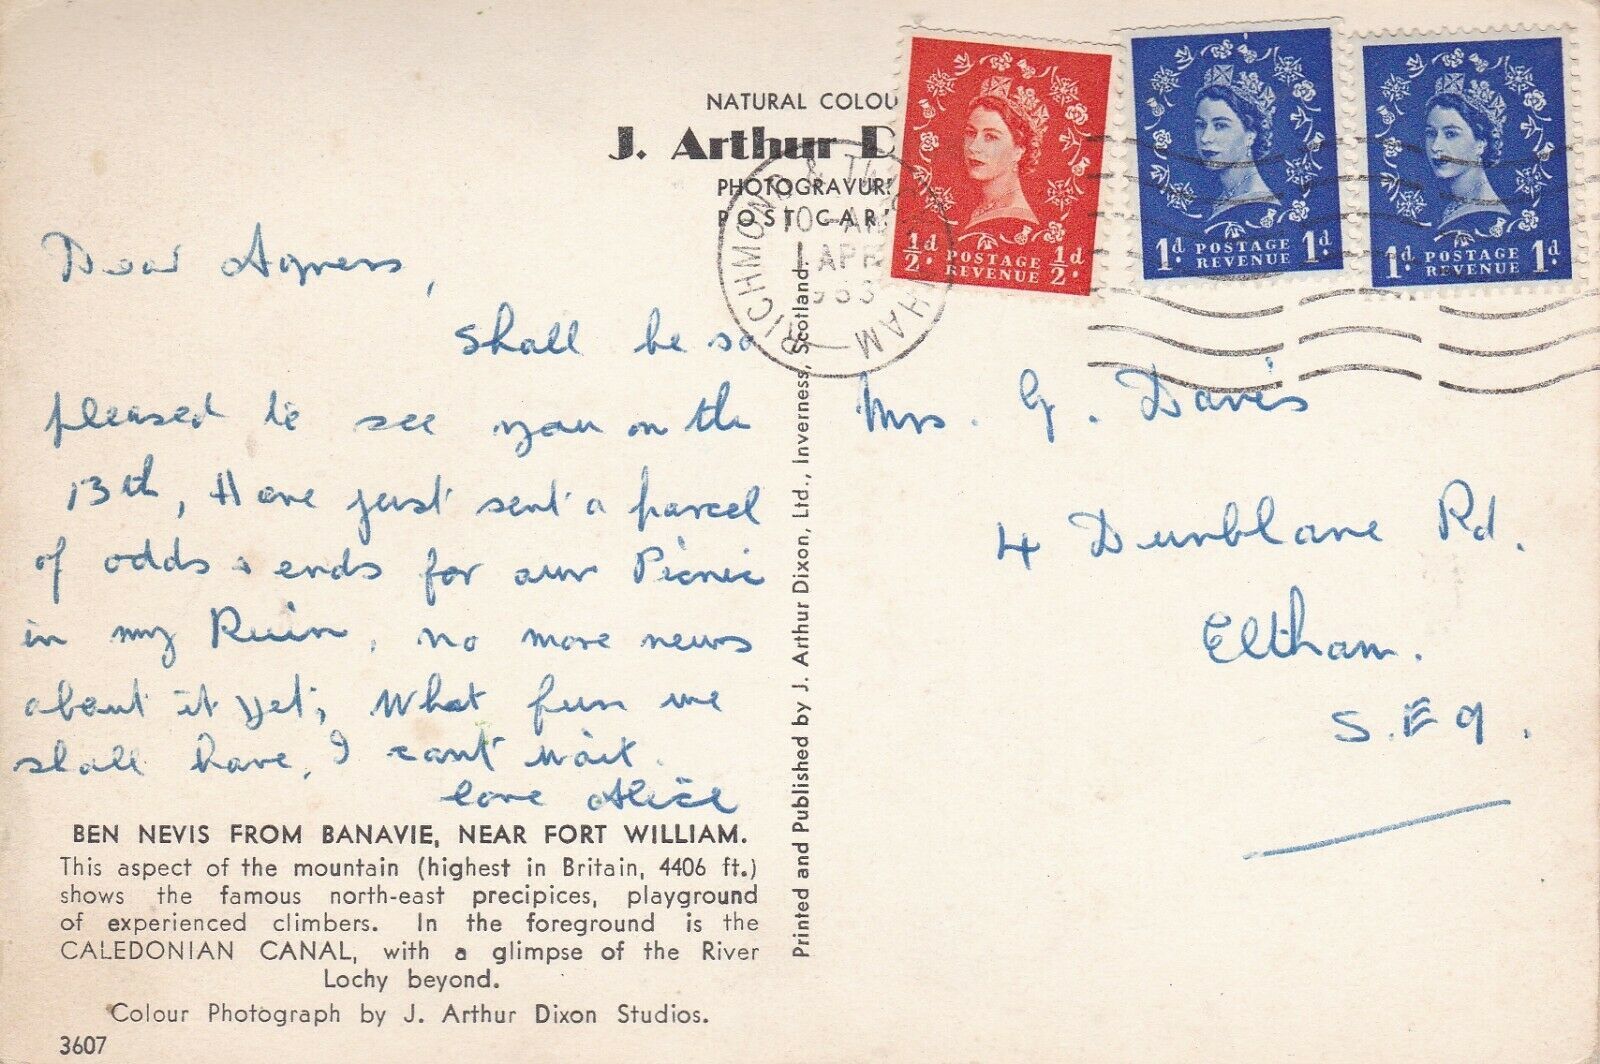 NATURAL COLOU
J. Arthur D
PHOTOGRAVUR
POST CAR
½d POSTAGE ½d
REVENUE
1d POSTAGE 1d
REVENUE
1d POSTAGE 1d
REVENUE
RICHMOND & TW HAM
10-AM
1 APR
1963
Dear Agness,
Shall be so
pleased to see you on the
13th, Have just sent a parcel
of odds & ends for our Picnic
in my Ruin, no more news
about it yet; What fun we
shall have, I can't wait.
love Alice
Mrs. G. Davis
4 Dunblane Rd.
Eltham.
S.E 9.
BEN NEVIS FROM BANAVIE, NEAR FORT WILLIAM.
This aspect of the mountain (highest in Britain, 4406 ft.)
shows the famous north-east precipices, playground
of experienced climbers. In the foreground is the
CALEDONIAN CANAL, with a glimpse of the River
Lochy beyond.
Colour Photograph by J. Arthur Dixon Studios.
3607
Printed and Published by J. Arthur Dixon, Ltd., Inverness, Scotland.